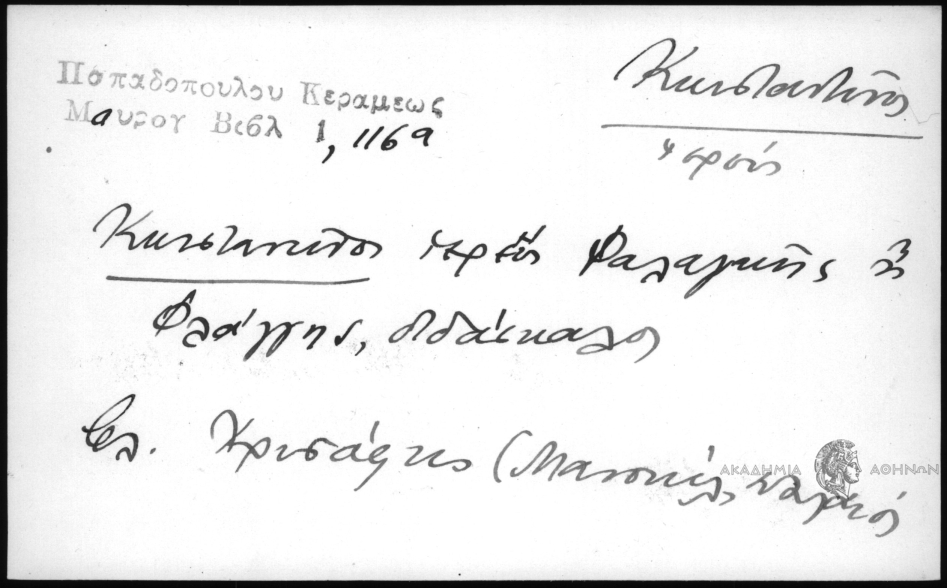 Παπαδοπούλου Κεραμεως
Μαυρογ Βιβλ 1, 116α
Κωνσταντῖνος
ἱερεύς
Κωνσταντῖνος ἱερεὺς Φαλαγκῆς ἢ
Φλάγγης, διδάσκαλος
Βλ. Χρυσάφης (Μανουὴλ παλαιός
ΑΚΑΔΗΜΙΑ ΑΘΗΝΩΝ